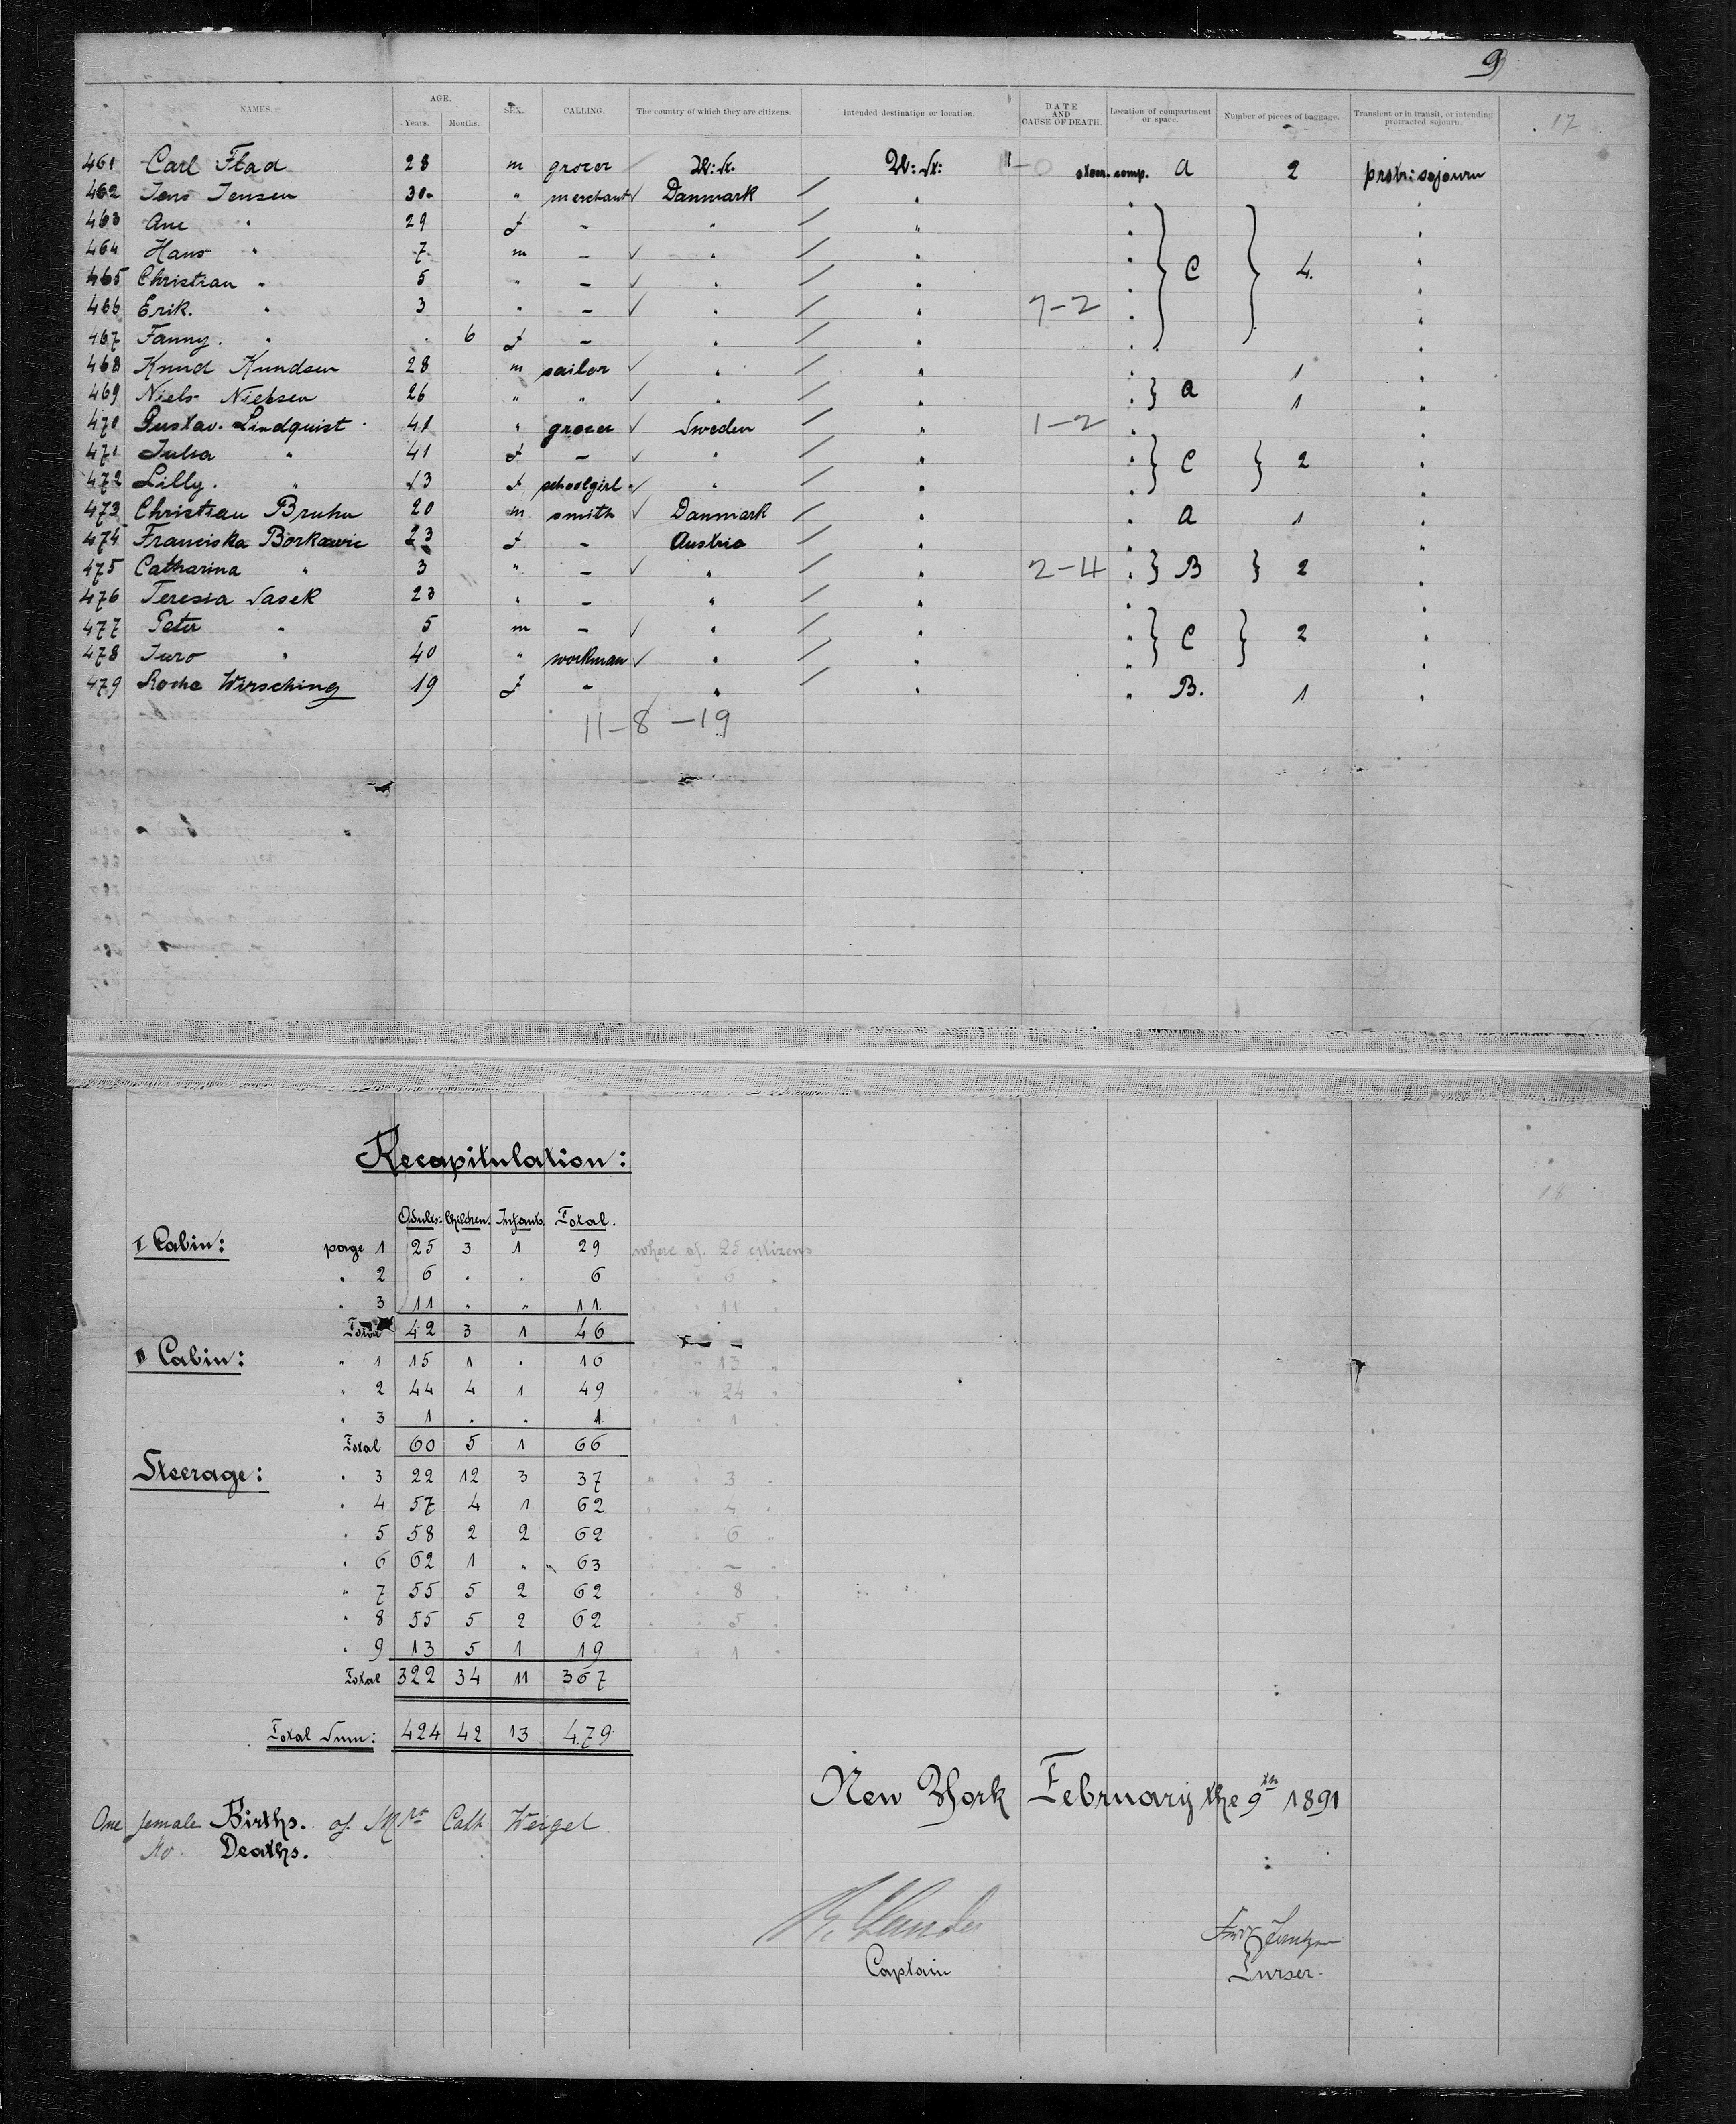 9
NAMES. AGE. Years. Months. SEX. CALLING. The country of which they are citizens. Intended destination or location. DATE AND CAUSE OF DEATH. Location of compartment or space. Number of pieces of baggage. Transient or in transit, or intending protracted sojourn. 17
461 Carl Flad 28 m grocer U: St. U: St: 1-0 steer. comp. a 2 protr: sojourn
462 Jens Jensen 30 " merchant ✓ Danmark / " " "
463 Ane " 29 f - " / " " "
464 Hans " 7 m - ✓ " / " " "
465 Christian " 5 " - ✓ " / " " } C } 4. "
466 Erik. " 3 " - ✓ " / " 7-2 " "
467 Fanny. " . 6 f - " / " " "
468 Knud Knudsen 28 m sailor ✓ " / " " 1 "
469 Niels Nielsen 26 " " ✓ " / " " } a 1 "
470 Gustav. Lindquist 41 " grocer ✓ Sweden / " 1-2 " "
471 Julia " 41 f - ✓ " / " " } C } 2 "
472 Lilly. " 13 f schoolgirl ✓ " / " " "
473 Christian Bruhn 20 m smith ✓ Danmark / " " a 1 "
474 Franciska Borkawic 23 f - Austria / " " "
475 Catharina " 3 " - ✓ " / " 2-4 " } B } 2 "
476 Teresia Vasek 23 " - " / " " "
477 Peter " 5 m - ✓ " / " " } C } 2 "
478 Juro " 40 " workman ✓ " / " " "
479 Wirsching 19 f - " / " " B. 1 "
11-8-19
Recapitulation:
18
Adults: Children. Infants. Total.
I Cabin: page 1 25 3 1 29 where of 25 citizens
" 2 6 . . 6 " " 6 "
" 3 11 . " 11. " " 11 "
Total 42 3 1 46
II Cabin: " 1 15 1 . 16 " " 13 "
" 2 44 4 1 49 " " 24 "
" 3 1 . . 1 " " 1 "
Total 60 5 1 66
Steerage: " 3 22 12 3 37 " " 3 "
" 4 57 4 1 62 " "
" 5 58 2 2 62 " " 6 "
" 6 62 1 " 63 " " - "
" 7 55 5 2 62 " " 8 "
" 8 55 5 2 62 " " 5 "
" 9 13 5 1 19 " " 1 "
Total 322 34 11 367
Total Sum: 424 42 13 479
New York February the 9th 1891
One female Births. of Mrs Cath Weigel
No. Deaths.
Captain
Purser.